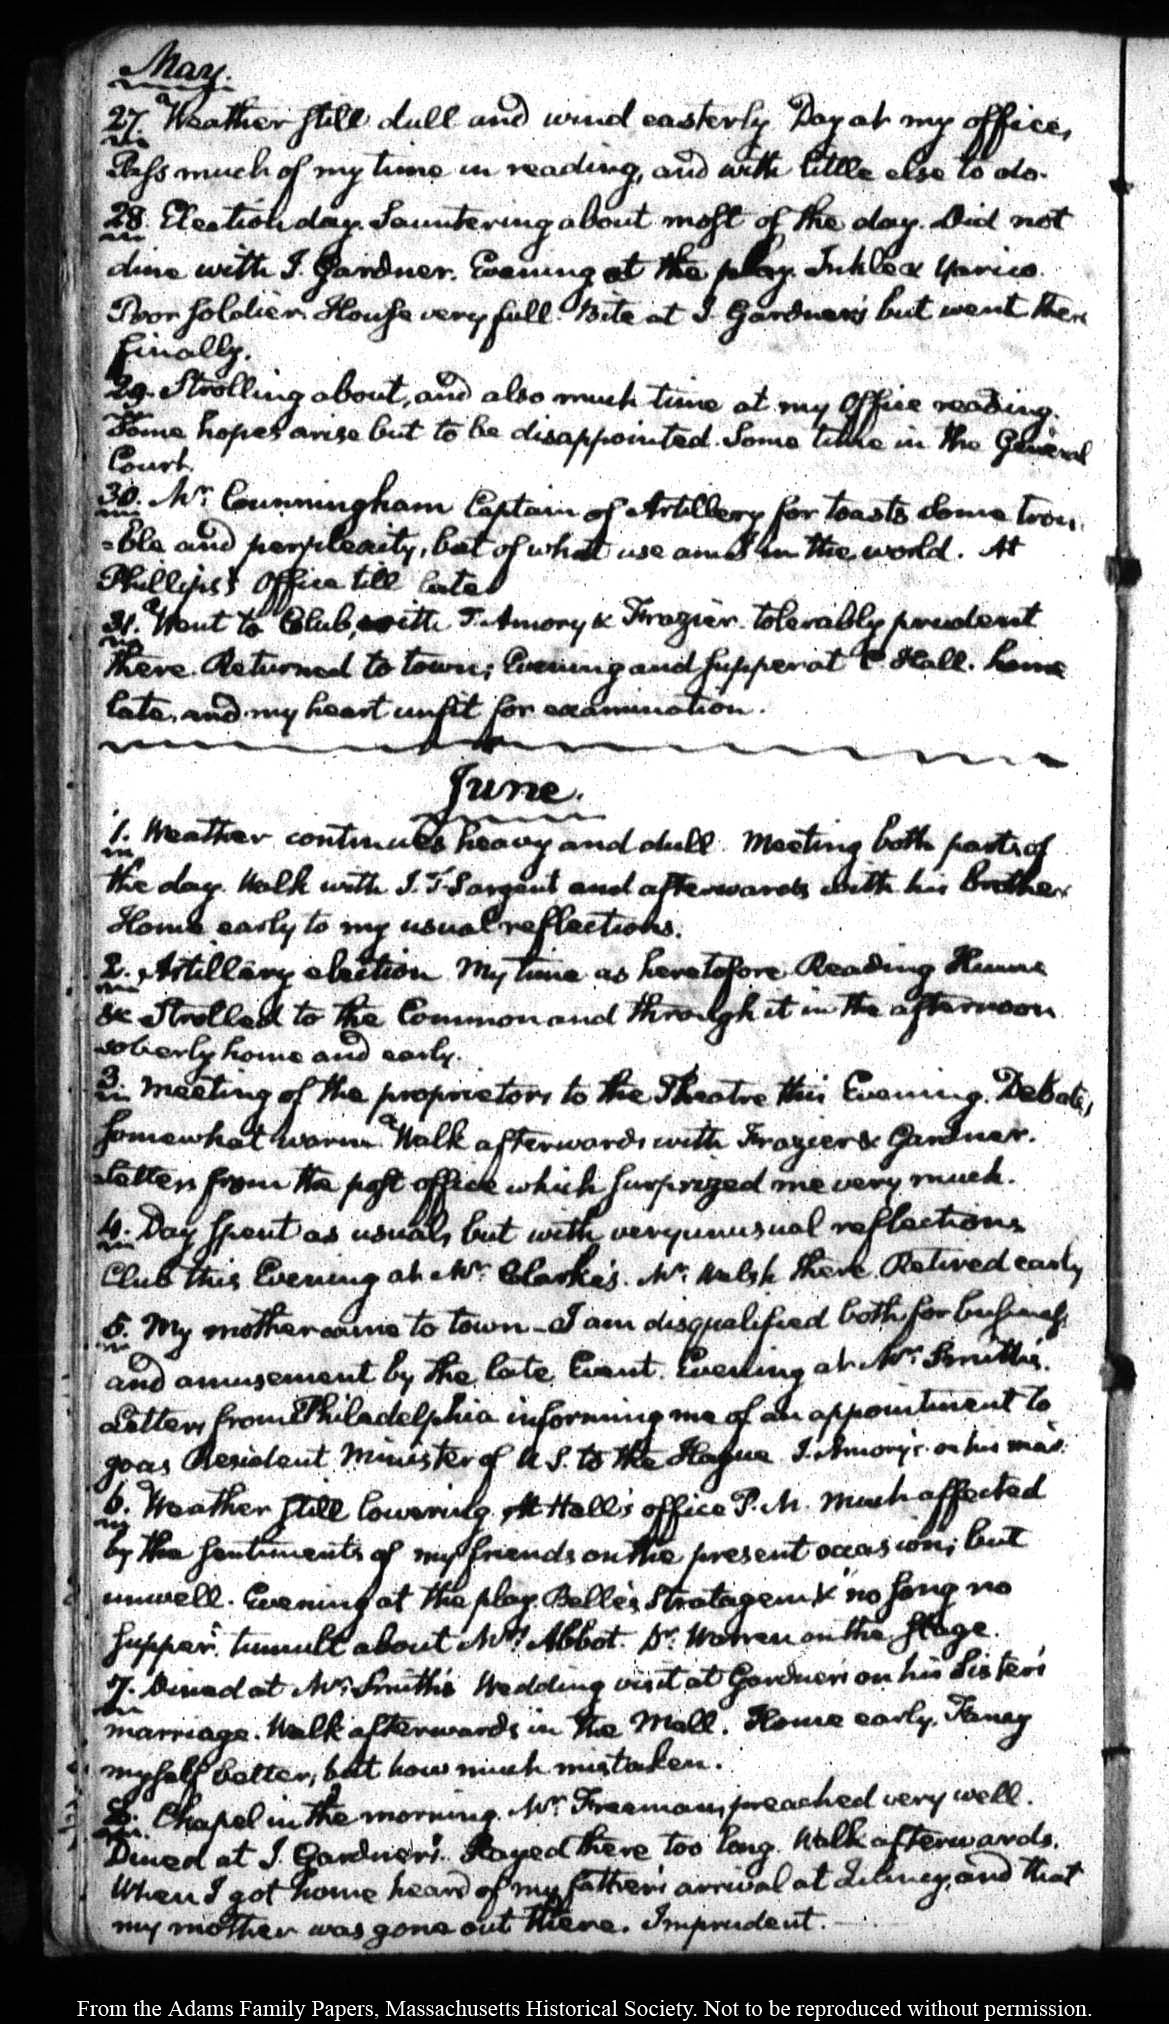 May.
27. Weather still dull and wind easterly Day at my office,
Pass much of my time in reading, and with little else to do.
28. Election day. Sauntering about most of the day. Did not
dine with J. Gardner. Evening at the play. Inkle & Yarico.
Poor soldier. House very full. Bite at J. Gardner's but went there
finally.
29. Strolling about, and also much time at my Office reading.
Some hopes arise but to be disappointed. Some time in the General
Court.
30. Mr. Cunningham Captain of Artillery for toasts some trou-
=ble and perplexity, but of what use am I in the world. At
Phillips's Office till late
31. Went to Club, with J. Amory & Frazier. tolerably prudent
there. Returned to town; Evening and supper at C Hall. home
late, and my heart unfit for examination.
June.
1. Weather continues heavy and dull. Meeting both parts of
the day. Walk with J. T. Sargent and afterwards with his brother
Home early to my usual reflections.
2. Artillery election. My time as heretofore Reading Hume
&c Strolled to the Common and through it in the afternoon
soberly home and early.
3. Meeting of the proprietors to the Theatre this Evening. Debates,
somewhat warm. Walk afterwards with Frazier & Gardner.
Letters from the post office which surprized me very much.
4. Day spent as usual, but with very unusual reflections
Club this Evening at Mr. Clarke's. Mr. Welsh there. Retired early
5. My mother came to town—I am disqualified both for business
and amusement by the late Event. Evening at Mr. Smith's.
Letters from Philadelphia informing me of an appointment to
go as Resident Minister of U S. to the Hague J. Amory's on his
6. Weather still lowering. At Hall's office P. M. Much affected
by the sentiments of my friends on the present occasion; but
unwell. Evening at the play. Belle's Stratagem & "no song no
supper". tumult about Mrs. Abbot. Dr. Warren on the stage.
7. Dined at Mr. Smith's Wedding visit at Gardner's on his Sister's
marriage. Walk afterwards in the Mall. Home early. Fancy
myself better; but how much mistaken.
8. Chapel in the morning. Mr. Freeman, preached very well.
Dined at J. Gardner's. Stayed there too long. Walk afterwards.
When I got home heard of my father's arrival at Quincy, and that
my mother was gone out there. Imprudent.
From the Adams Family Papers, Massachusetts Historical Society. Not to be reproduced without permission.